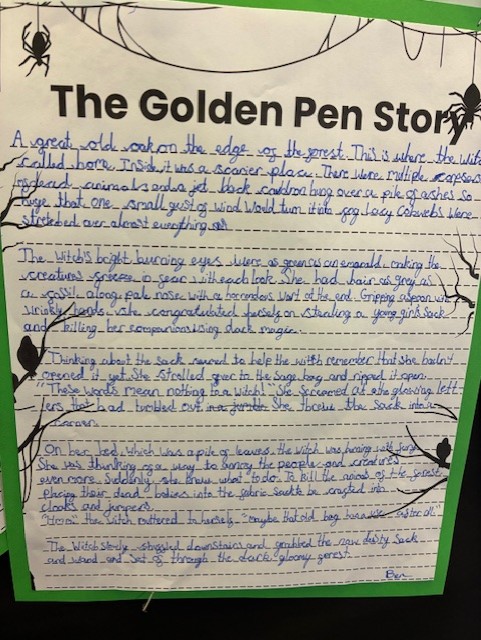 The Golden Pen Story
A great old oak on the edge of the forest. This is where the witch
called home. Inside it was a scarier place. There were multiple corpses
of dead animals and a jet back cauldron hung over a pile of ashes so
huge that one small gust of wind would turn it into fog. Lacy Cobwebs were
stretched over almost everything
The witch's bright burning eyes were as green as an emerald, making the
creatures freeze in fear with each look. She had hair as grey as
a fossil along pale nose with a horrendous wart at the end. Gripping a spoon in
wrinkly hands. she congratulated herself on stealing a young girls Sack
and killing her companions using dark magic.
Thinking about the sack seemed to help the witch remember that she hadn't
opened it yet. She strolled over to the bag and ripped it open.
"These words mean nothing to a witch!" She screamed at the glowing lett
ers that had tumbled out in a She threw the sack into a
corner.
On her bed, which was a pile of leaves, the witch was fuming with
She was thinking of a way to annoy the people and creatures
even more. Suddenly, she knew what to do. To kill the animals of the forest
placing their dead bodies into the fabric sack to be crafted into
cloaks and jumpers.
the witch muttered to herself. "maybe that old bag has a use after all"
The Witch slowly struggled downstairs and grabbed the now dusty Sack
and wand and set of through the dark, gloomy forest.
Ben